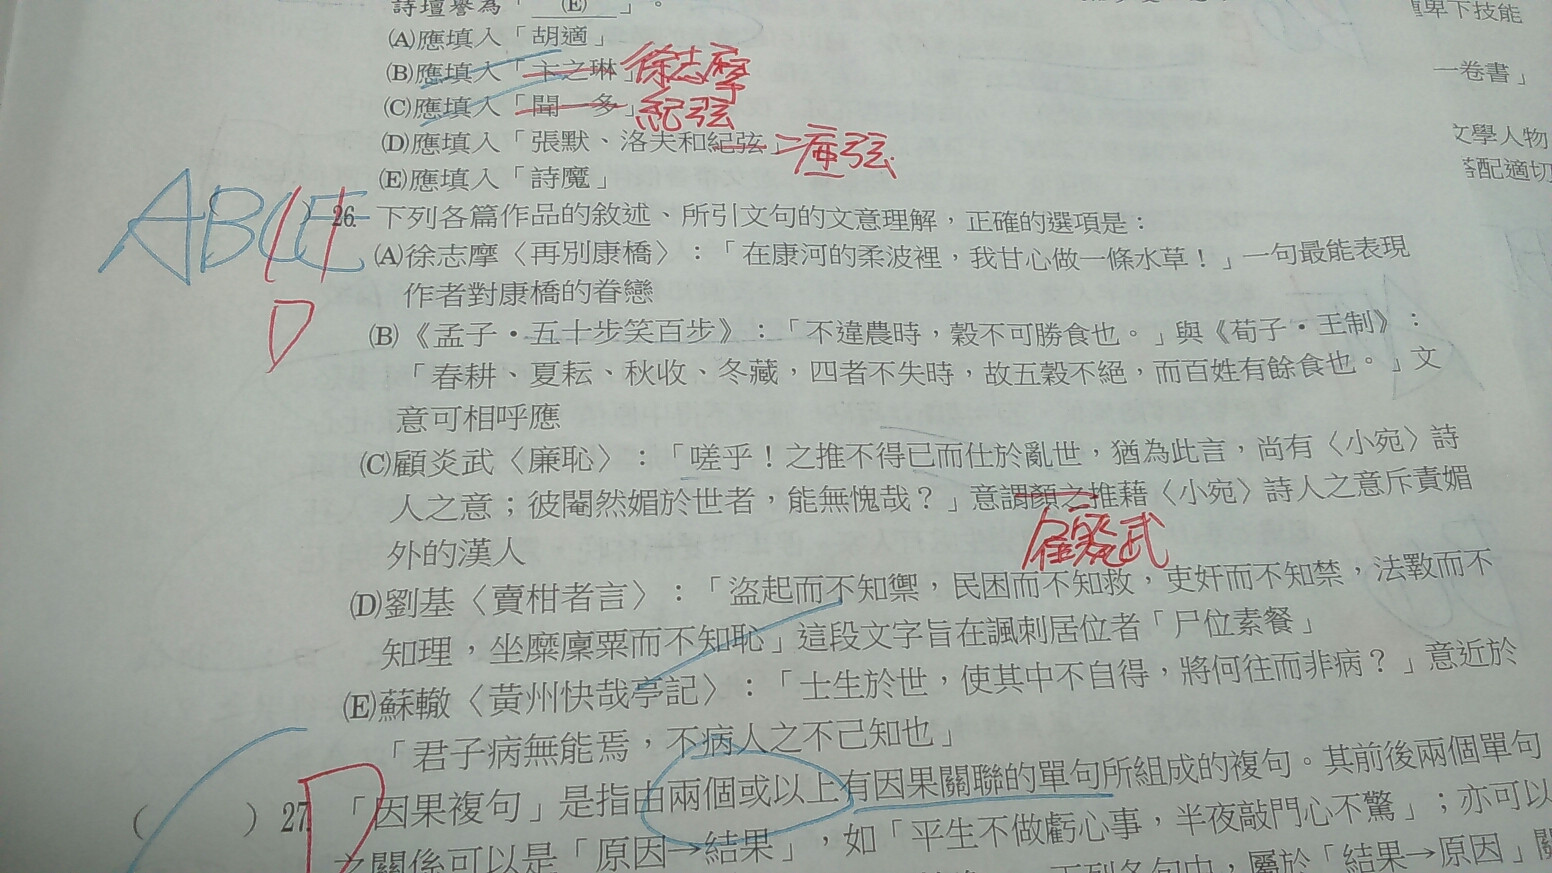 詩壇譽為「 (E) 」。
(A)應填入「胡適」
(B)應填入「卞之琳」徐志摩
(C)應填入「聞一多」紀弦
(D)應填入「張默、洛夫和紀弦」瘂弦
(E)應填入「詩魔」
ABCE
D
26. 下列各篇作品的敘述、所引文句的文意理解,正確的選項是:
(A)徐志摩〈再別康橋〉:「在康河的柔波裡,我甘心做一條水草!」一句最能表現
作者對康橋的眷戀
(B)《孟子·五十步笑百步》:「不違農時,穀不可勝食也。」與《荀子·王制》:
「春耕、夏耘、秋收、冬藏,四者不失時,故五穀不絕,而百姓有餘食也。」文
意可相呼應
(C)顧炎武〈廉恥〉:「嗟乎!之推不得已而仕於亂世,猶為此言,尚有〈小宛〉詩
人之意;彼閹然媚於世者,能無愧哉?」意謂顏之推藉〈小宛〉詩人之意斥責媚
顧炎武
外的漢人
(D)劉基〈賣柑者言〉:「盜起而不知禦,民困而不知救,吏奸而不知禁,法斁而不
知理,坐糜廩粟而不知恥」這段文字旨在諷刺居位者「尸位素餐」
(E)蘇轍〈黃州快哉亭記〉:「士生於世,使其中不自得,將何往而非病?」意近於
「君子病無能焉,不病人之不己知也」
( ) 27. 「因果複句」是指由兩個或以上有因果關聯的單句所組成的複句。其前後兩個單句
之關係可以是「原因→結果」,如「平生不做虧心事,半夜敲門心不驚」;亦可以
下列各句中,屬於「結果→原因」關
卑下技能
一卷書」
文學人物
搭配適切